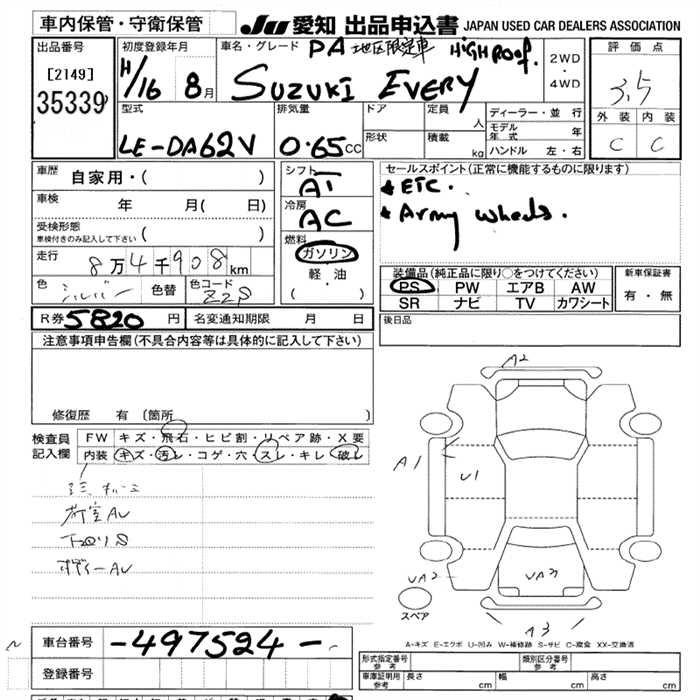 車内保管・守衛保管
JU 愛知 出品申込書 JAPAN USED CAR DEALERS ASSOCIATION
出品番号
[2149]
35339
初度登録年月
H/16 8月
車名・グレード PA 地区限定車 HIGH ROOF.
SUZUKI EVERY
2WD
・
4WD
評価点
3.5
外装 内装
C C
型式
LE-DA62V
排気量
0.65CC
ドア
形状
定員
人
積載
kg
ディーラー・並行
モデル年式 年
ハンドル 左・右
車歴 自家用・( )
車検 年 月( 日)
受検形態
車検付きのみ記入して下さい ( )
走行 8万4千908km
色 シルバー 色替 色コード Z2S
シフト
AT
冷房
AC
燃料
ガソリン
軽・油
( )
セールスポイント(正常に機能するものに限ります)
★ ETC.
★ Army wheels.
装備品(純正品に限り○をつけてください)
PS PW エアB AW
SR ナビ TV カワシート
新車保証書
有・無
R券 5820円 名変通知期限 月 日
後日品
注意事項申告欄(不具合内容等は具体的に記入して下さい)
修復歴 有 (箇所 )
検査員
記入欄
FW キズ・飛石・ヒビ割・リペア跡・X要
内装 キズ・汚レ・コゲ・穴・スレ・キレ・破レ
荷室AU
下回りS
ボディーAU
A2
A1
U1
UA2
UA3
スペア
A3
A-キズ E-エクボ U-凹み W-補修跡 S-サビ C-腐食 XX-交換済
車台番号 -497524-
登録番号
形式指定番号
参考
類別区分番号
参考
車庫証明用
参考
長さ cm 幅 cm 高さ cm